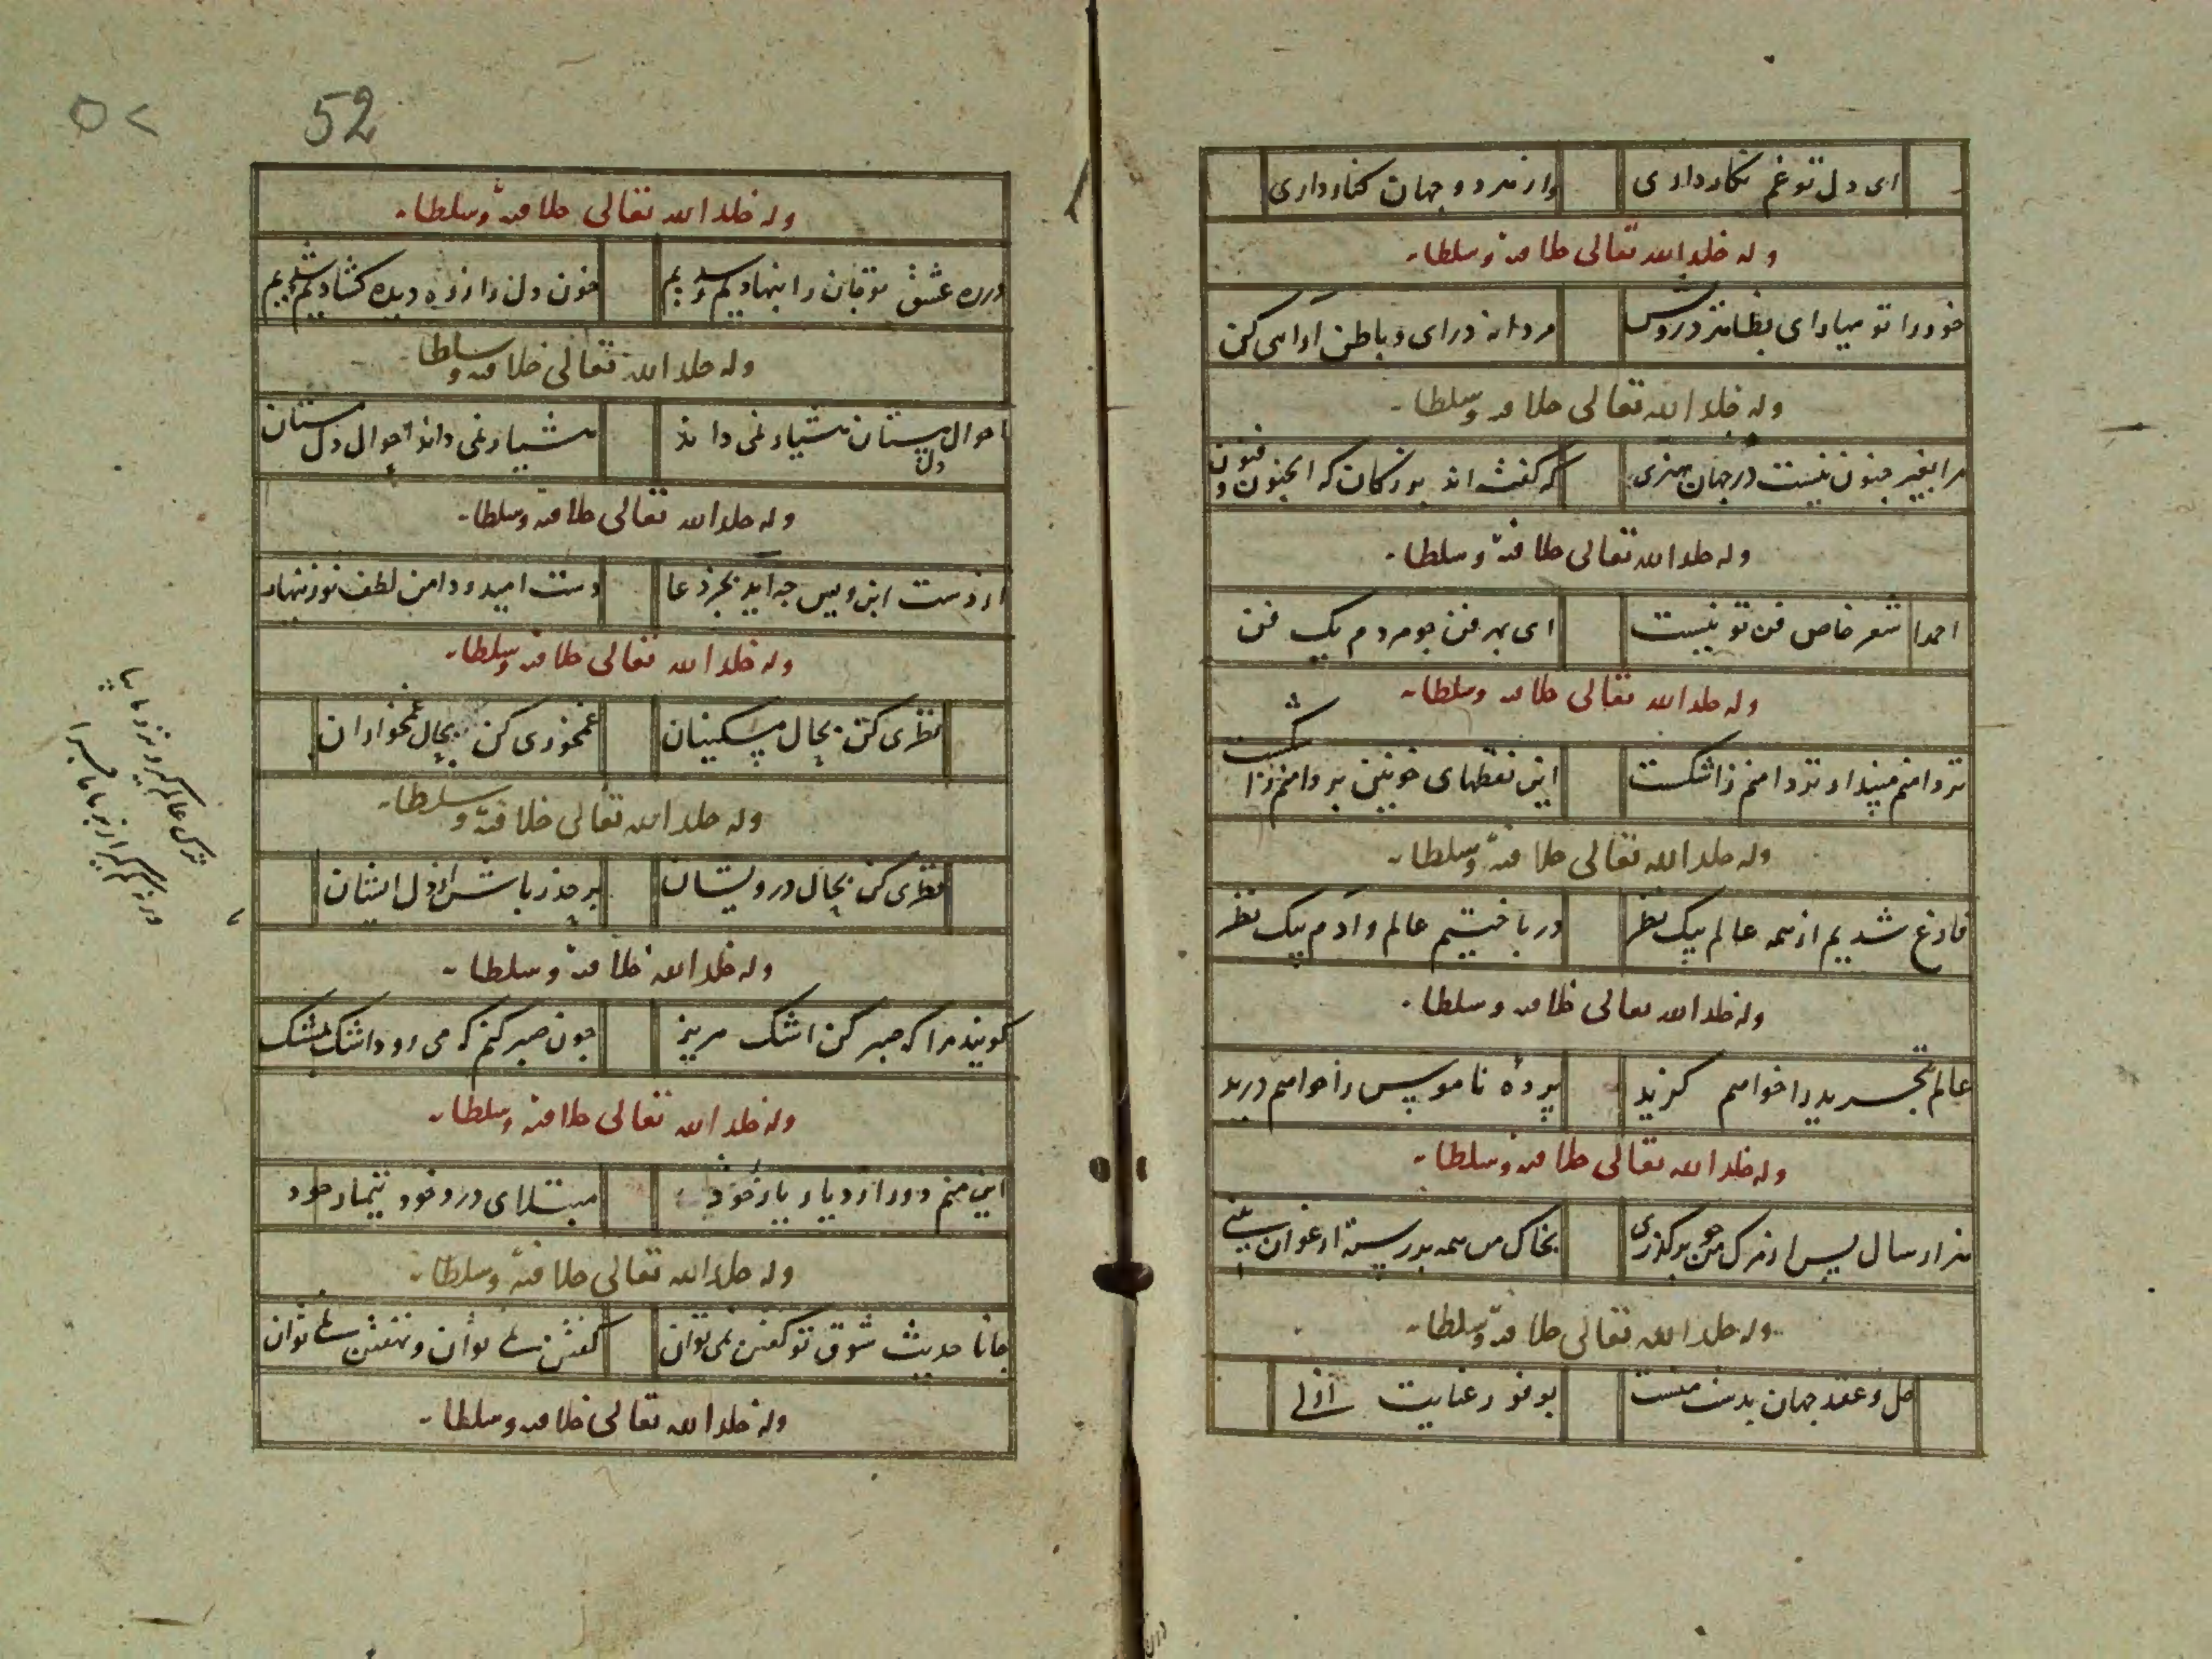 ای دل تو غم نگار داری واز هر دو جهان کنار داری
وله خلد الله تعالی خلافته وسلطانه
خود را تو میارای بظاهر در وش مردانه درای و باطن ارامی کن
وله خلد الله تعالی خلافته وسلطانه
مرا بغیر جنون نیست در جهان هنری که گفته اند بزرگان که الجنون فنون
وله خلد الله تعالی خلافته وسلطانه
احمدا شعر خاص فن تو نیست ای بهر فن چو مردم یک فن
وله خلد الله تعالی خلافته وسلطانه
تردامنم مپندار تردامنم ز اشکست این نقطهای خونین بر دامنم ز اشکست
وله خلد الله تعالی خلافته وسلطانه
فارغ شدیم از همه عالم بیک نظر درباختیم عالم و آدم بیک نظر
وله خلد الله تعالی خلافته وسلطانه
عالم تجرید را خواهم گزید پردهٔ ناموس را خواهم درید
وله خلد الله تعالی خلافته وسلطانه
هزار سال پس از مرک من چو برگذری بخاک من همه بر رسته ارغوان بینی
وله خلد الله تعالی خلافته وسلطانه
حل و عقد جهان بدست منست بوفور عنایت ازلی
52
۵۲
وله خلد الله تعالی خلافته وسلطانه
در ره عشق تو جان را بنهادیم و شدیم خون دل را ز ره دیده کشادیم و شدیم
وله خلد الله تعالی خلافته وسلطانه
احوال دل مستان هشیار نمی داند هشیار نمی داند احوال دل مستان
وله خلد الله تعالی خلافته وسلطانه
از دست ابن ویس چه آید بجز دعا دست امید و دامن لطف تو زینهار
وله خلد الله تعالی خلافته وسلطانه
نظری کن بحال مسکینان غمخوری کن بحال غمخواران
وله خلد الله تعالی خلافته وسلطانه
نظری کن بحال درویشان بر حذر باش از دل ایشان
وله خلد الله خلافته وسلطانه
کویند مرا که صبر کن اشک مریز چون صبر کنم که می رود اشک بمشک
وله خلد الله تعالی خلافته وسلطانه
این منم دور از دیار یار خود مبتلای درد خود تیمار خود
وله خلد الله تعالی خلافته وسلطانه
جانا حدیث شوق تو کفتن نمی توان کفتن نمی توان و نهفتن نمی توان
وله خلد الله تعالی خلافته وسلطانه